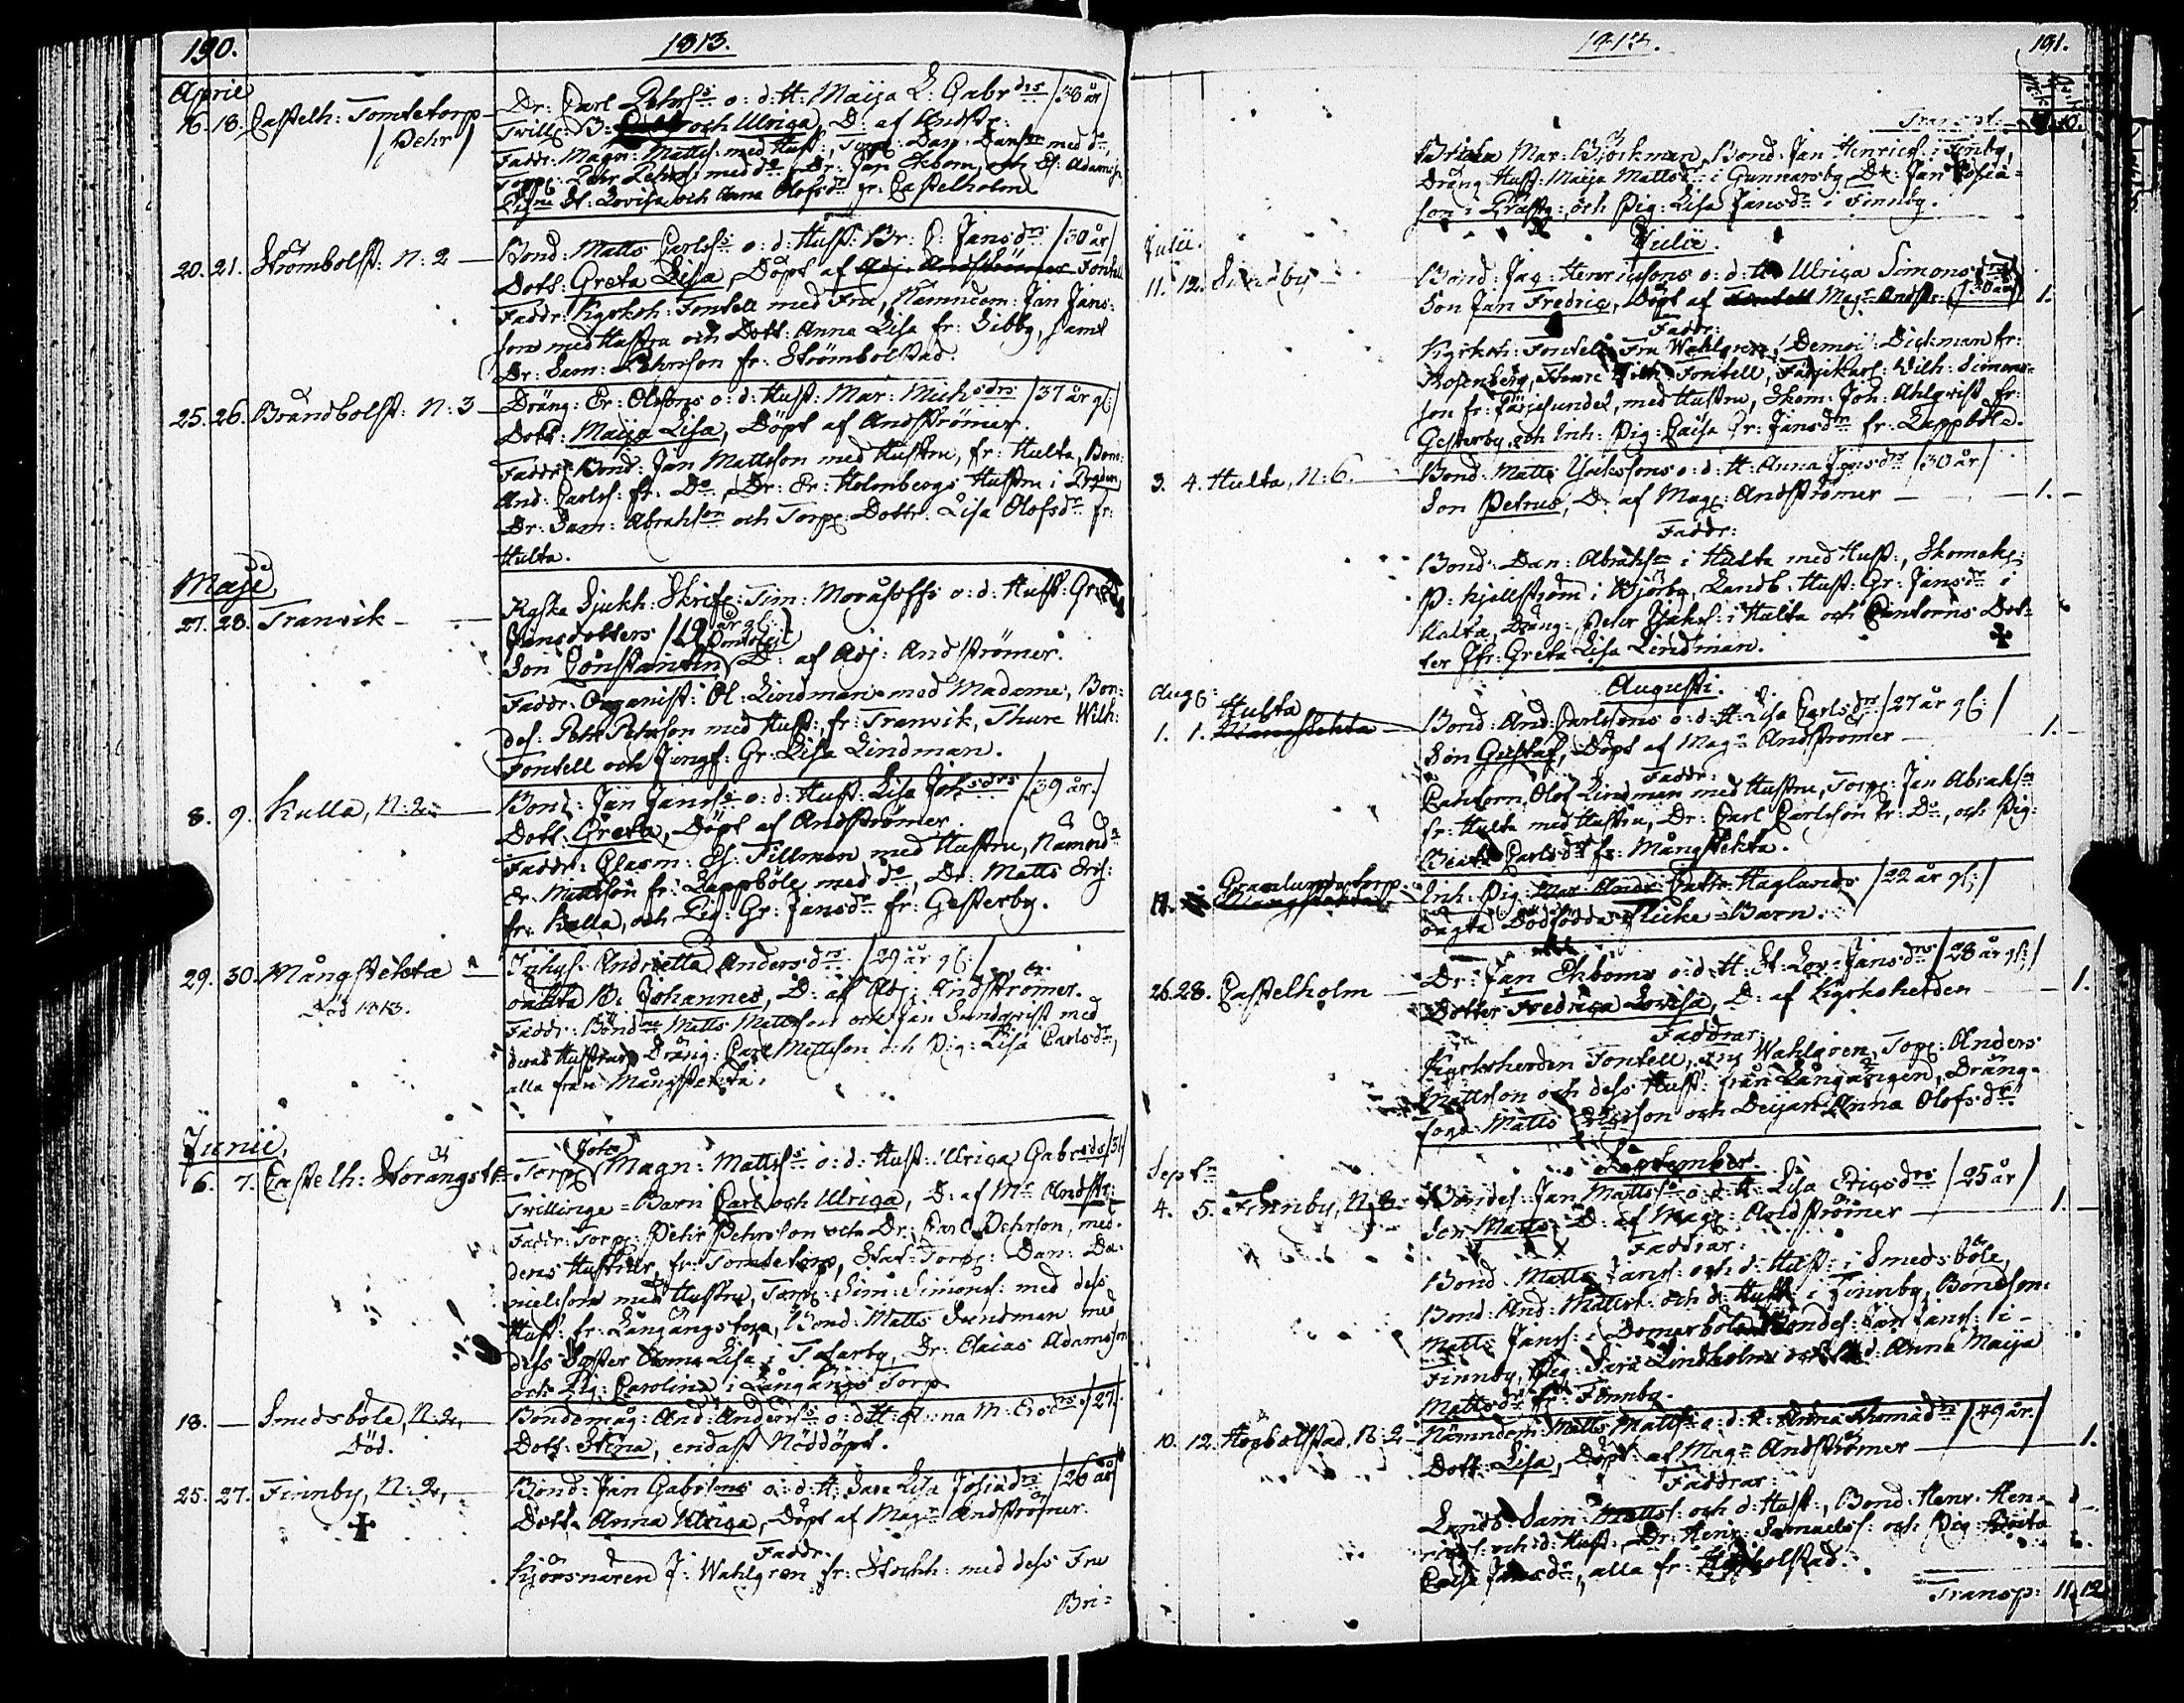 190.
1813.
April
16. 18. Castelh: Tomtetorp
/Pehr/
Dr: Carl Pehrss o: d: H: Maija L: Gabrdrs /38 år/
Trill: B: och Ulriga, D: af Andstr:
Faddr: Magn: Mattss: med Hust:, Torp: Dan: Danss med do,
Torp: Pehr Pehrss: med do, Dr: Jan Ekbom, och El: Adamss,
St: Lovisa och Anna Olofsdr fr: Castelholm
20. 21. Strömbolst: N: 2
Bond: Matts Carlss o: d: Hust: Br: C: Jansdrs /30 år/
Dott: Greta Lisa, Döpt af Adj: Andströmer Fontell
Faddr: Kyrkoh: Fontell med Fru, Nämndem: Jan Jans:
son med Hustru och Dott: Anna Lisa fr: Sibby, samt
Dr: Sam: Pehrson fr: Strömbolstad.
25. 26. Brändbolst: N: 3
Dräng: Er: Olssons o: d: Hust: Mar: Michsdrs /37 år gl:/
Dott: Maija Lisa, Döpt af Andströmer.
Faddr: Bond: Jan Mattsson med Hustru, fr: Hulta, Bon:
And: Carlss: fr: Do, Dr: Er: Holmbergs Hustru i
Dr: Sam: Abrahson och Torp: Dottr: Lisa Olofsdr fr:
Hulta.
Maji
27. 28. Tranvik
Ryske Sjukh: Skrif: Tim: Moråsoffs o: d: Hust: Greta
Jansdotters /19 år gl:/
Son Constantin D: af Adj: Andströmer.
Faddr: Organist: Ol: Lindman med Madame, Bon:
des: Pehr Pehrson med Hust:, fr: Tranvik, Thure Wilh:
Fontell och Jungf: Gr: Lisa Lindman.
8. 9. Kulla, N: 2
Bond: Jan Janss o: d: Hust: Lisa Johsdrs /39 år/
Dott: Greta, Döpt af Andströmer.
Faddr: Glasm: Tillman med Hustru, Nämnd
Er: Mattsson fr: Lappböle med do, Dr: Matts Ers:
fr: Kulla, och Pig: Gr: Jansdr fr: Gesterby.
29. 30. Mångstekta
Död 1813.
Inhys: Andrietta Andersdrs /29 år gl:/
oäkta B: Johannes, D: af Adj: Andströmer.
Faddr: Bönd Matts Mattsson och Jan Sundqvist med
deras Hustrur, Dräng: Carl Mattsson och Pig: Lisa Carlsdr,
alla från Mångstekta.
Junii
6. 7. Castelh: Storängst:
Torp: Magn: Mattss o: d: Hust: Ulriga Gabrsdrs /34/
Trillinge=Barn Carl och Ulriga, D: af Mr Andstr:
Faddr: Torp: Pehr Pehrsson och Dr: Carl Pehrson, med
deras Hustrur, fr: Tomtetorp, Stat-Torp: Dan: Da:
nielsson med Hustru, Torp: Sim: Simons: med dess
Hust: fr: Långängstorp, Bond: Matts Sundman med
dess Syster Anna Lisa i Tosarby, Dr: Elaias Adamsson
och Pig: Carolina i Långängs Torp
18. — Smedsböle, N: 2,
Död.
Bondemåg: And: Anderss o: d: H: Anna M: Ersdrs /27/
Dott: Stina, endast Nöddöpt.
25. 27. Finnby, N: 2,
Bond: Jan Gabrsons o: d: H: Sara Lisa Josiädrs /26 år/
Dott: Anna Ulriga, Döpt af Mag: Andströmer.
Faddr:
Kjörsnären J: Wahlgren fr: Stockh: med dess Fru
Bri=
1813.
191.
Transpt
Brigita Mar: Björkman, Bond: Jan Henrics: i Finby,
Dräng Hust: Maija Mattsdr i Gunnarsby, Dr: Jan Josia=
son i Gräsby, och Pig: Lisa Jansdr i Finnby.
Julii.
Julii.
11. 12. Sundby
Bond: Jac: Henricssons o: d: H: Ulriga Simonsdrs
Son Jan Fredric, Döpt af Fontell Magr Andstr: /30 år/ 1.
Faddr:
Kyrkoh: Fontell, Fru Wahlgren, Demois: Dickman fr:
Rosenberg, Thure Wilh: Fontell, Färjekarl: Wilh: Simons=
son fr: Färjesundet, med Hustru, Skom: Joh: Ahlqvist fr:
Gesterby, och Inh: Pig: Caisa Gr: Jansdr fr: Lappböle.
3. 4. Hulta, N: 6.
Bond: Matts Isakssons o: d: H: Anna Jansdrs /30 år/
Son Petrus, D: af Mag: Andströmer 1.
Faddr:
Bond: Dan: Abrahsn i Hulta med Hust:, Skomak:
P: Kjellström i Björby, Landb: Hust: Gr: Jansdr i
Kulta, Dräng: Pehr Isaks: i Hulta och Cantorns Dot=
ter Jfr: Greta Lisa Lindman.
Aug:
Augusti.
1. 1. Hulta
Mångstekta
Bond: And: Carlssons o: d: H: Lisa Carlsdrs /27 år gl:/
Son Gustaf, Döpt af Magr Andströmer 1.
Faddr:
Cantorn Olof Lindman med Hustru, Torp: Jan Abrahsn
fr: Hulta med Hustru, Dr: Carl Carlsson fr: Do, och Pig:
Beata Carlsdr fr: Mångstekta.
17. Granlundstorp.
Mångstekta
Inh: Pig: Mar: Andr: Cath: Haglunds /22 år gl:/
oägta Dödfödda Flicke=Barn.
26. 28. Castelholm
Dr: Jan Ekboms o: d: H: St: Lov: Jansdrs /28 år gl:/
Dotter Fredrica Lovisa, D: af Kyrkoherden 1.
Faddrar
Kyrkoherden Fontell, Wahlgren, Torp: Anders
Mattsson och dess Hust: från Långängen, Dräng=
fogd: Matts Ericsson och Deijan Anna Olofsdr.
Septr
September
4. 5. Finnby, N: 3
Bondes: Jan Mattss o: d: H: Lisa Ericsdrs /25 år/
Son Matts D: af Mag: Andströmer 1.
Faddrar:
Bond: Matts Janss: och d: Hust: i Smedsböle,
Bond: And: Mattss: och d: Hust: i Finnby, Bondson:
Matts Janss: i Domarböle, Bondes: Jan Janss: i
Finnby, Pig: Sara Lindholm och Anna Maija
Mattsdr fr: Finnby.
10. 12. Högbolstad, N: 2
Nämndem: Matts Mattss o: d: H: Anna Thomadrs /49 år/
Dott: Lisa, Döpt af Magr Andströmer 1.
Faddrar:
Landb: Sam: Mattss: och d: Hust:, Bond: Henr: Hen=
rics: och d: Hust:, Dr: Henr: Samuelss: och Pig:
Caisa Jansdr, alla fr: Högbolstad.
Transp: 11. 12